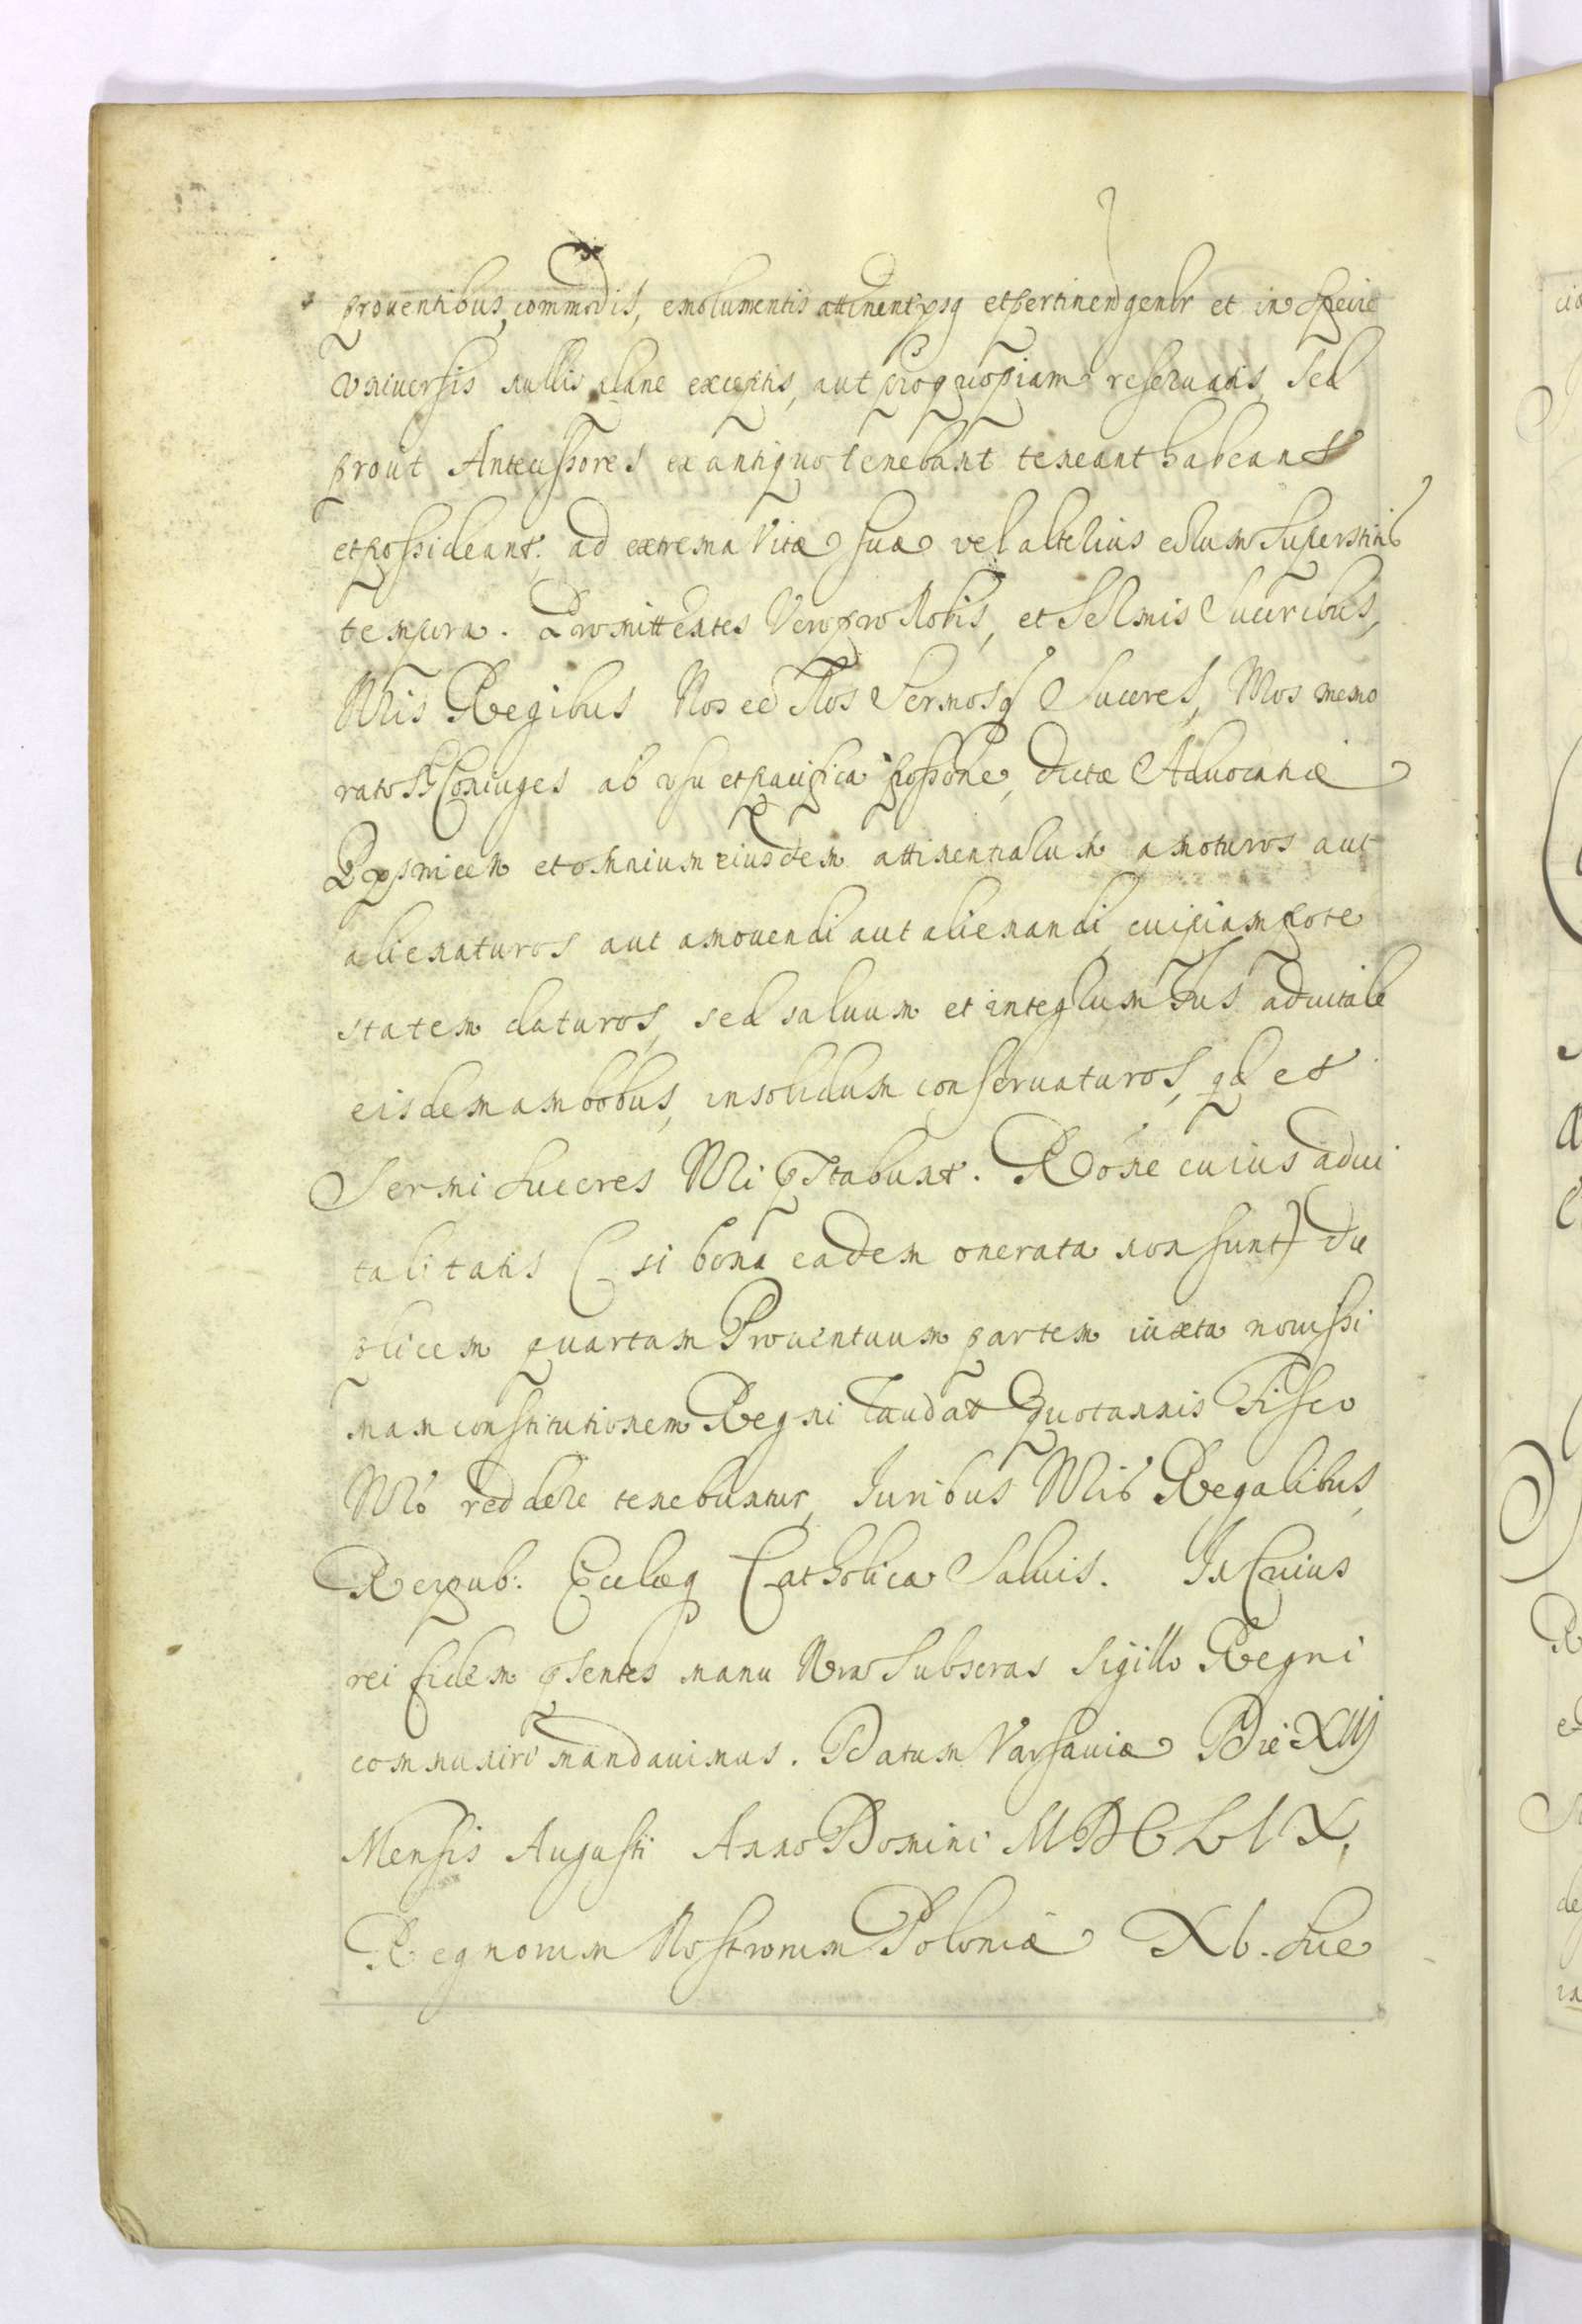 prouentibus, commodis, emolumentis attinent et pertinen genlr et in specie
Vniuersis nullis plane exceptis, aut pro quopiam reseruatis, sed
prout Antecessores ex antiquo tenebant teneant habeant
et possideant. ad extrema Vitæ suæ vel alterius eorum Superstitis
tempora. Promittentes Vero pro Nobis, et Sermis Succribus,
Nris Regibus Nos ee Nos Sermosq Succres, Nros memo
ratos Coniuges ab vsu et pacifica possone, dictæ Aduocatiæ
et omnium eiusdem attinentiarum amoturos aut
alienaturos aut amouendi aut alienandi cuipiam pote
statem daturos, sed saluum et integrum Ius aduitale
eisdem ambobus, in solidum conseruaturos, qd et
Sermi Succres Nri pstabunt. Rone cuius adui
talitatis (si bona eadem onerata non sunt) du
plicem quartam Prouentuum partem iuxta nouissi
mam constitutionem Regni laudat quotannis Fisco
Nro reddere tenebuntur, Iuribus Nris Regalibus,
Reipub. Ecclæq Catholicæ Saluis. In Cuius
rei fidem psentes manu Nra Subscras Sigillo Regni
communiri mandauimus. Datum Varsauiæ Die XIIj
Mensis Augusti Anno Domini MDCLIX,
Regnorum Nostrorum Poloniæ XI. Sue